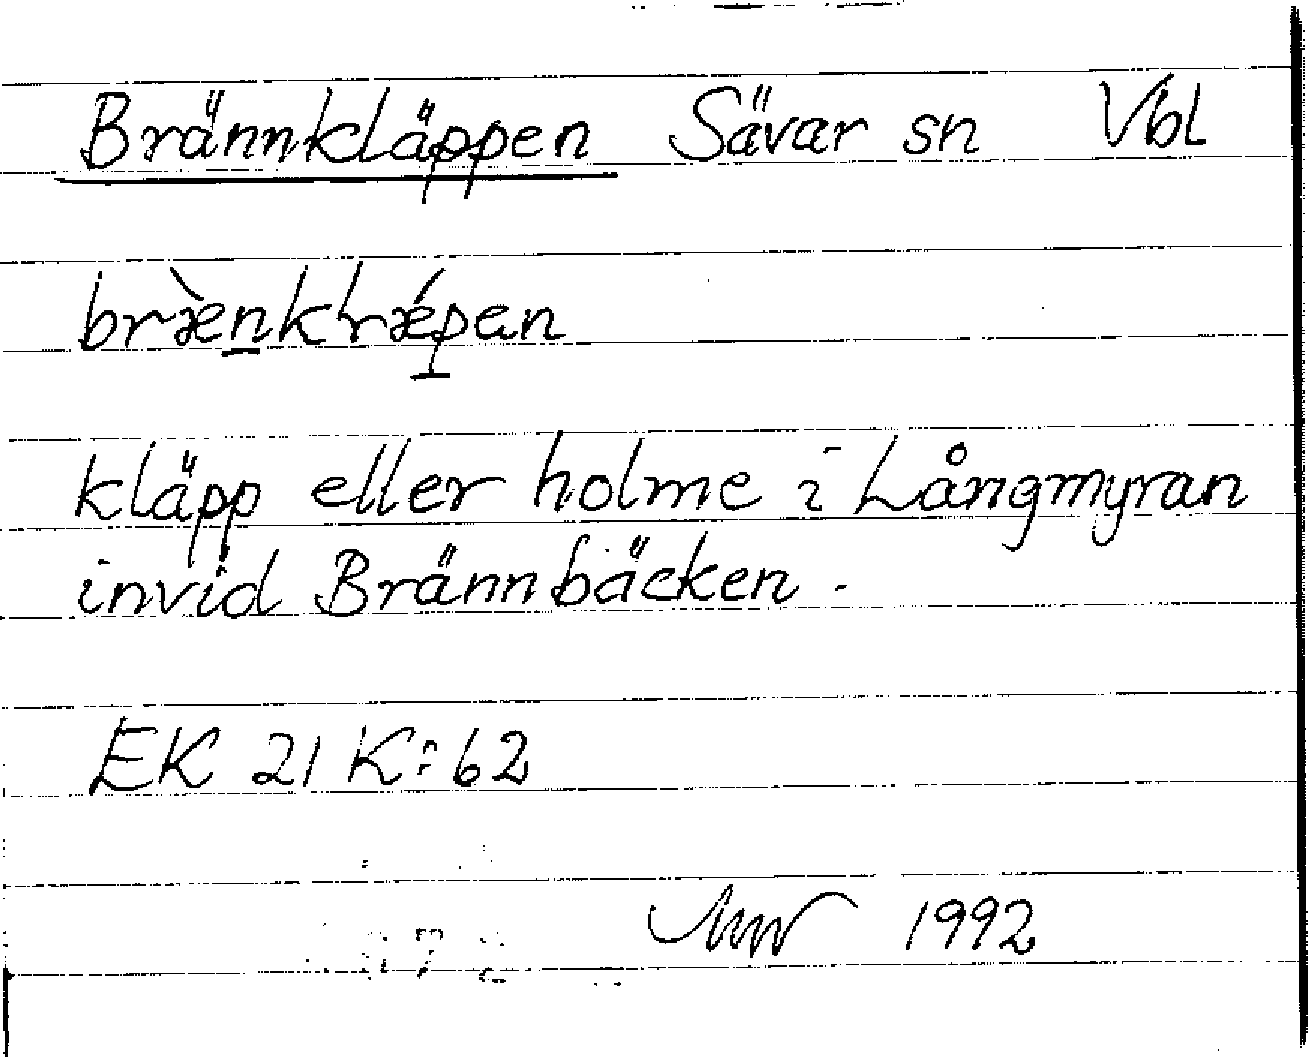 Brännkläppen Sävar sn Vbl
bræ̀nkłǽpan
kläpp eller holme i Långmyran
invid Brännbäcken.
EK 21 K:62
1992